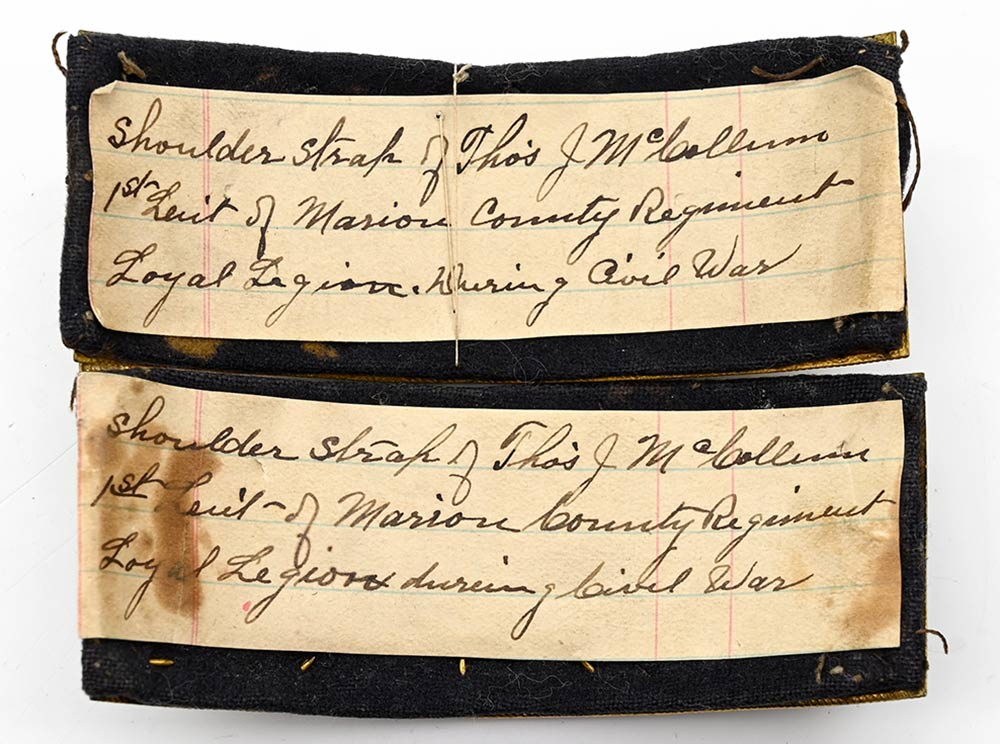 Shoulder strap of Tho's J McCollum
1st Leut of Marion County Regiment
Loyal Legion. During Civil War
Shoulder strap of Tho's J McCollum
1st Leut of Marion County Regiment
Loyal Legion dureing Civil War